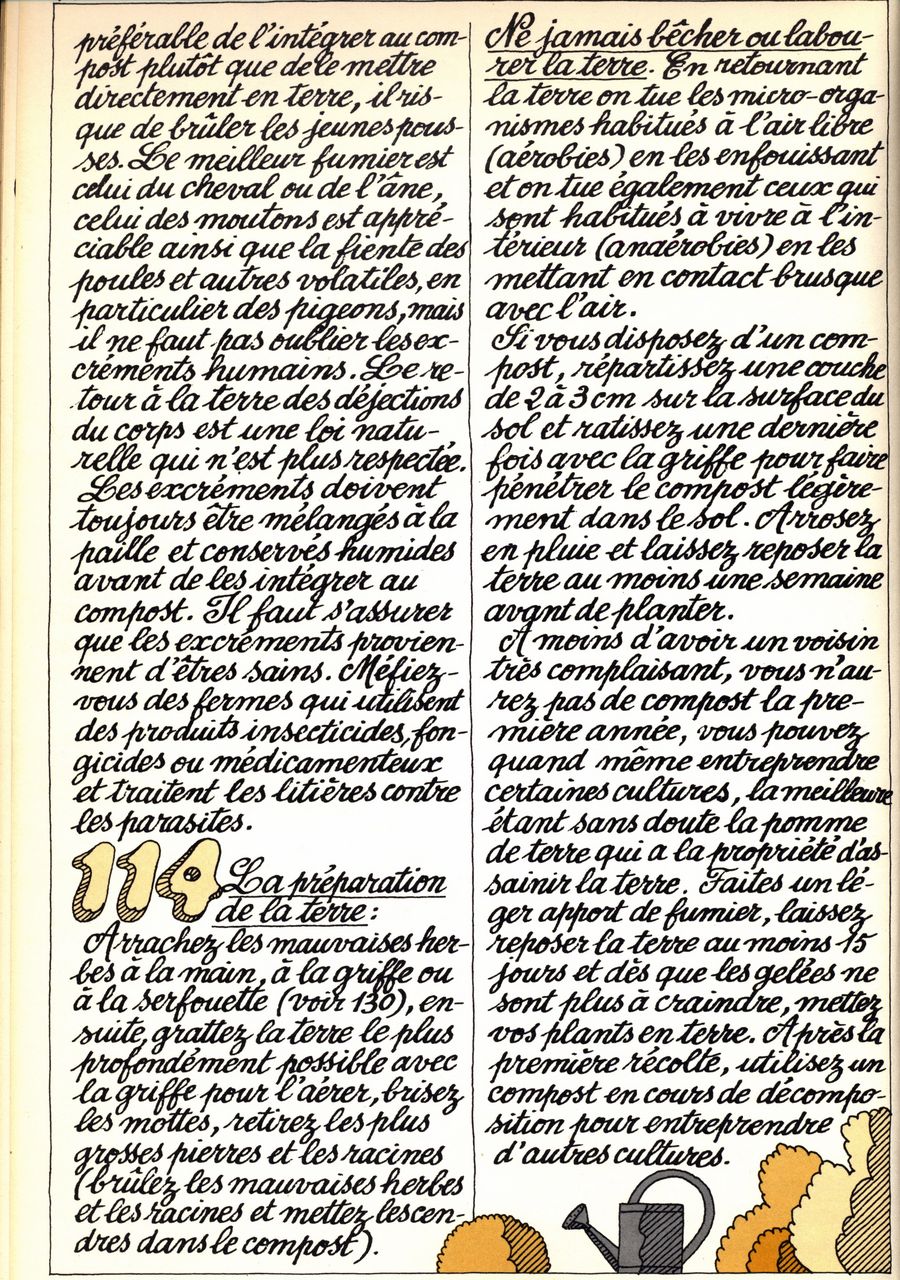 préférable de l'intégrer au com-
post plutôt que de le mettre
directement en terre, il ris-
que de brûler les jeunes pous-
ses. Le meilleur fumier est
celui du cheval ou de l'âne,
celui des moutons est appré-
ciable ainsi que la fiente des
poules et autres volatiles, en
particulier des pigeons, mais
il ne faut pas oublier les ex-
créments humains. Le re-
tour à la terre des déjections
du corps est une loi natu-
relle qui n'est plus respectée.
Les excréments doivent
toujours être mélangés à la
paille et conservés humides
avant de les intégrer au
compost. Il faut s'assurer
que les excréments provien-
nent d'êtres sains. Méfiez-
vous des fermes qui utilisent
des produits insecticides, fon-
gicides ou médicamenteux
et traitent les litières contre
les parasites.
114 La préparation
de la terre :
Arrachez les mauvaises her-
bes à la main, à la griffe ou
à la serfouette (voir 130), en-
suite, grattez la terre le plus
profondément possible avec
la griffe pour l'aérer, brisez
les mottes, retirez les plus
grosses pierres et les racines
(brûlez les mauvaises herbes
et les racines et mettez les cen-
dres dans le compost).
Ne jamais bêcher ou labou-
rer la terre. En retournant
la terre on tue les micro-orga-
nismes habitués à l'air libre
(aérobies) en les enfouissant
et on tue également ceux qui
sont habitués à vivre à l'in-
térieur (anaérobies) en les
mettant en contact brusque
avec l'air.
Si vous disposez d'un com-
post, répartissez une couche
de 2 à 3 cm sur la surface du
sol et ratissez une dernière
fois avec la griffe pour faire
pénétrer le compost légère-
ment dans le sol. Arrosez
en pluie et laissez reposer la
terre au moins une semaine
avant de planter.
A moins d'avoir un voisin
très complaisant, vous n'au-
rez pas de compost la pre-
mière année, vous pouvez
quand même entreprendre
certaines cultures, la meilleure
étant sans doute la pomme
de terre qui a la propriété d'as-
sainir la terre. Faites un lé-
ger apport de fumier, laissez
reposer la terre au moins 15
jours et dès que les gelées ne
sont plus à craindre, mettez
vos plants en terre. Après la
première récolte, utilisez un
compost en cours de décompo-
sition pour entreprendre
d'autres cultures.